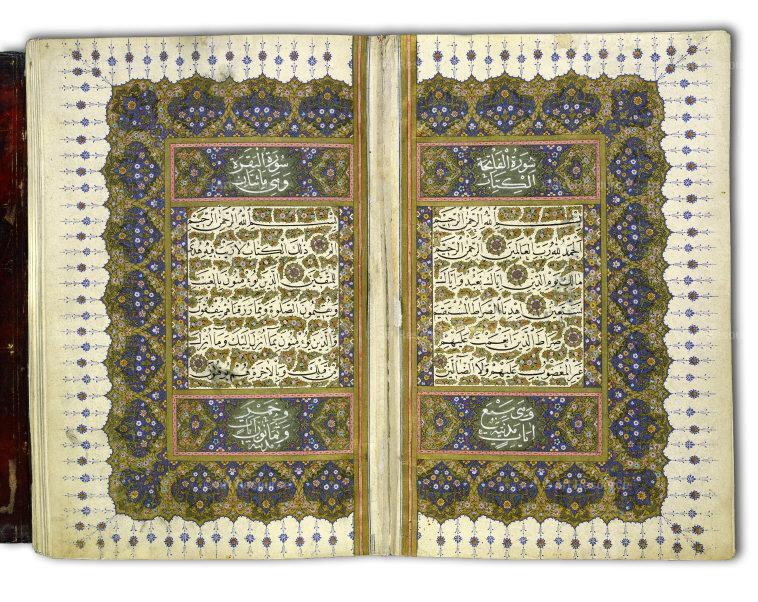 سورة الفاتحة
الكتاب
بسم الله الرحمن الرحيم
الحمد لله رب العالمين الرحمن الرحيم
مالك يوم الدين اياك نعبد واياك
نستعين اهدنا الصراط المستقيم
صراط الذين انعمت عليهم
غير المغضوب عليهم ولا الضالين
وهى سبع
آيات مدنية
سورة البقرة
وهى مائتان
بسم الله الرحمن الرحيم
الم ذلك الكتاب لا ريب فيه هدى
للمتقين الذين يؤمنون بالغيب
ويقيمون الصلوة ومما رزقناهم ينفقون
والذين يؤمنون بما انزل اليك وما انزل
من قبلك وبالاخرة هم يوقنون
وثمانون